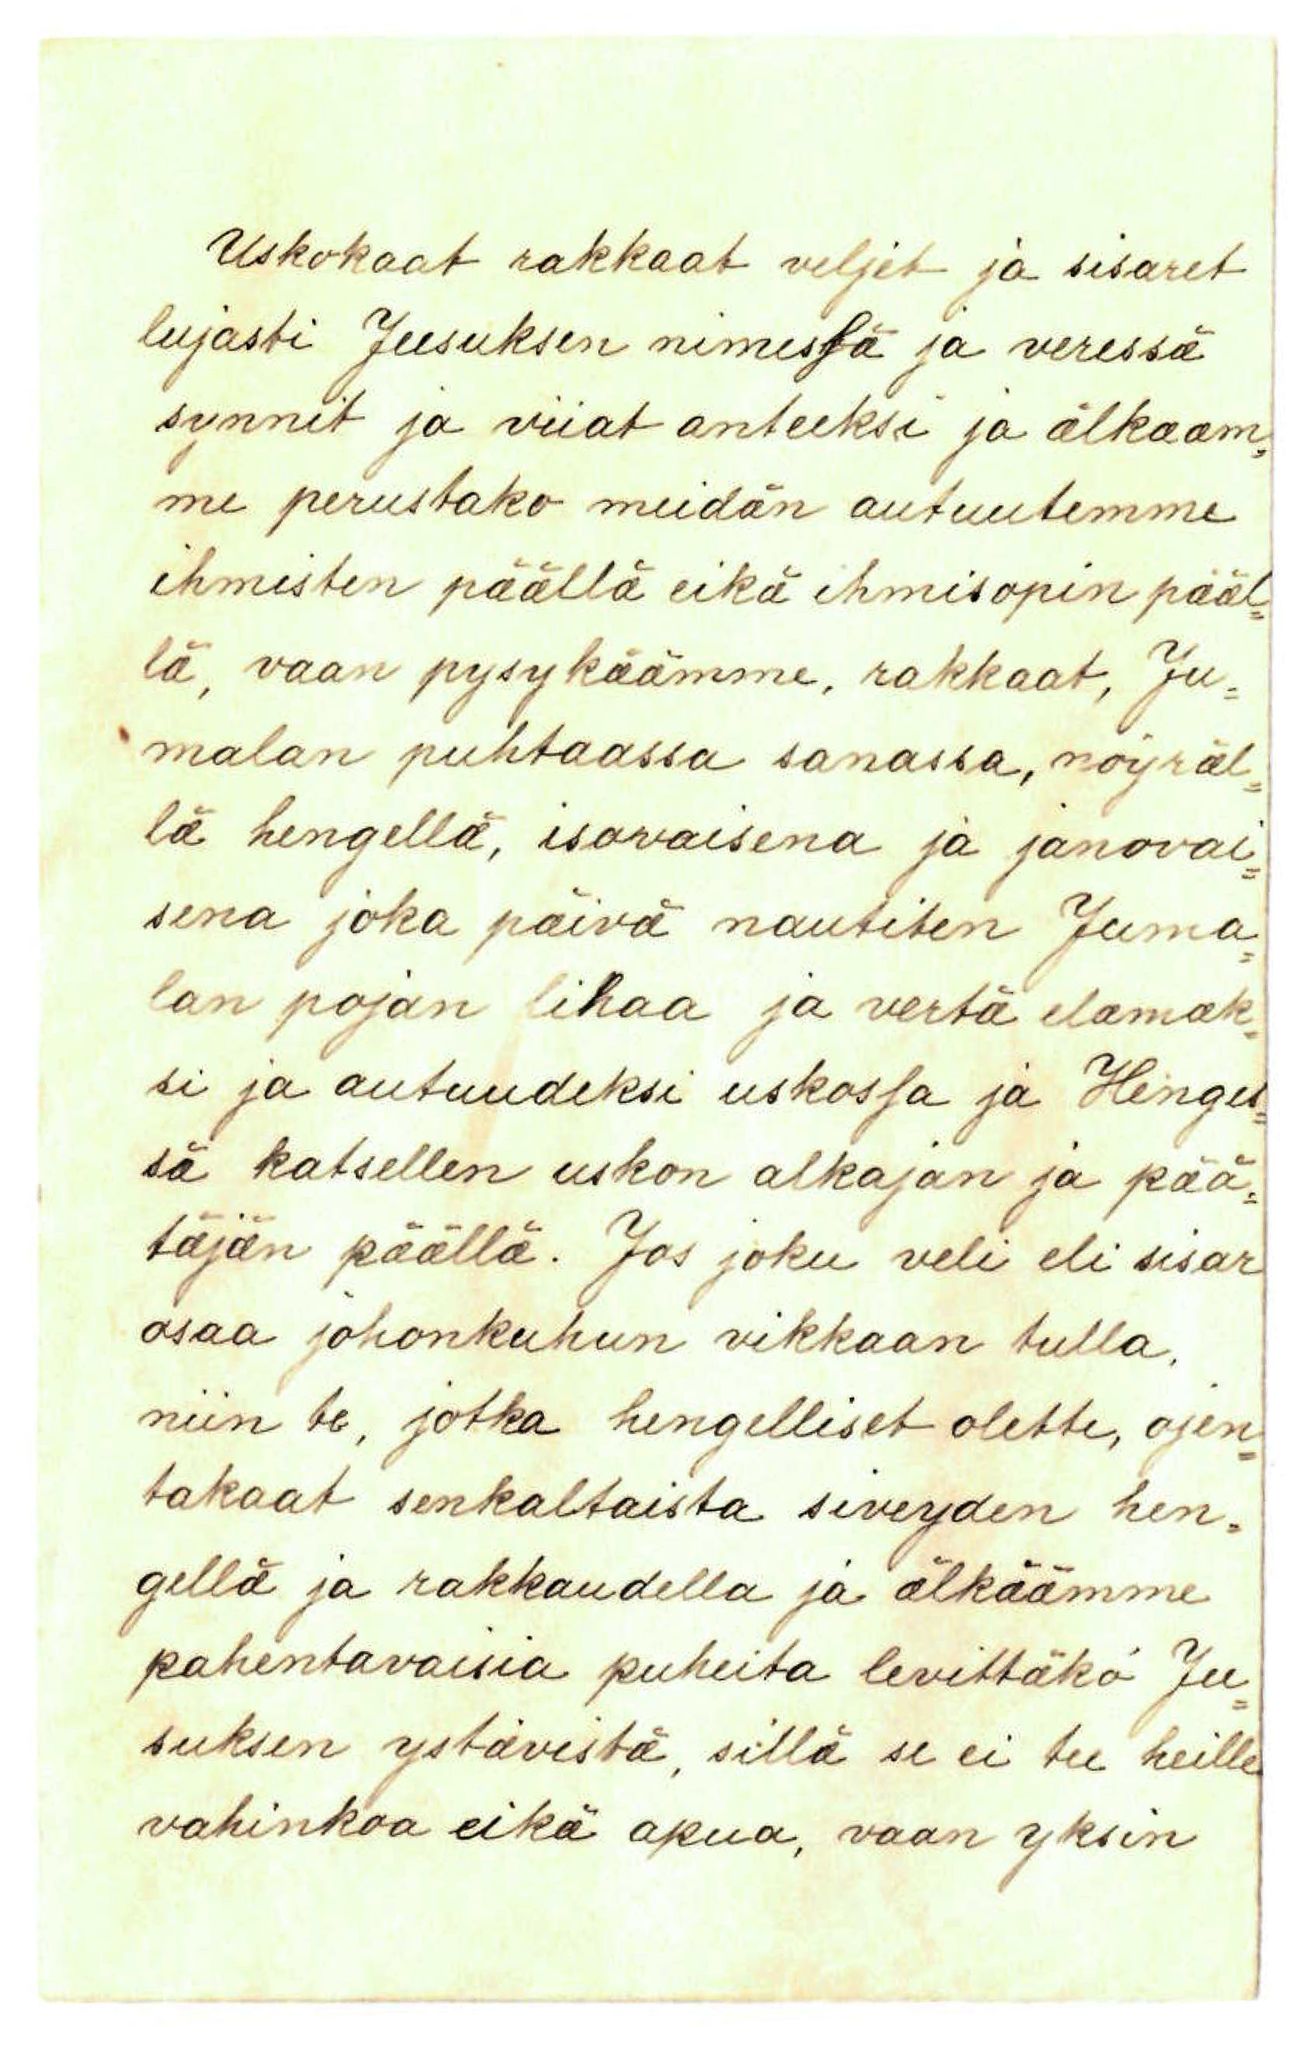 Uskokaat rakkaat veljet ja sisaret
lujasti Jeesuksen nimessä ja veressä
synnit ja viiat anteeksi ja älkaam=
me perustako meidän autuutemme
ihmisten päällä eikä ihmisopin pääl=
lä, vaan pysykäämme, rakkaat, Ju=
malan puhtaassa sanassa, nöyräl=
lä hengellä, isovaisena ja janovai=
sena joka päivä nautiten Juma=
lan pojan lihaa ja vertä elamak=
si ja autuudeksi uskossa ja Henges=
sä katsellen uskon alkajan ja pää=
täjän päällä. Jos joku veli eli sisar
osaa johonkuhun vikkaan tulla,
niin te, jotka hengelliset olette, ojen=
takaat senkaltaista siveyden hen=
gellä ja rakkaudella ja älkäämme
pahentavaisia puheita levittäkö Jee=
suksen ystävistä, sillä se ei tee heille
vahinkoa eikä apua, vaan yksin